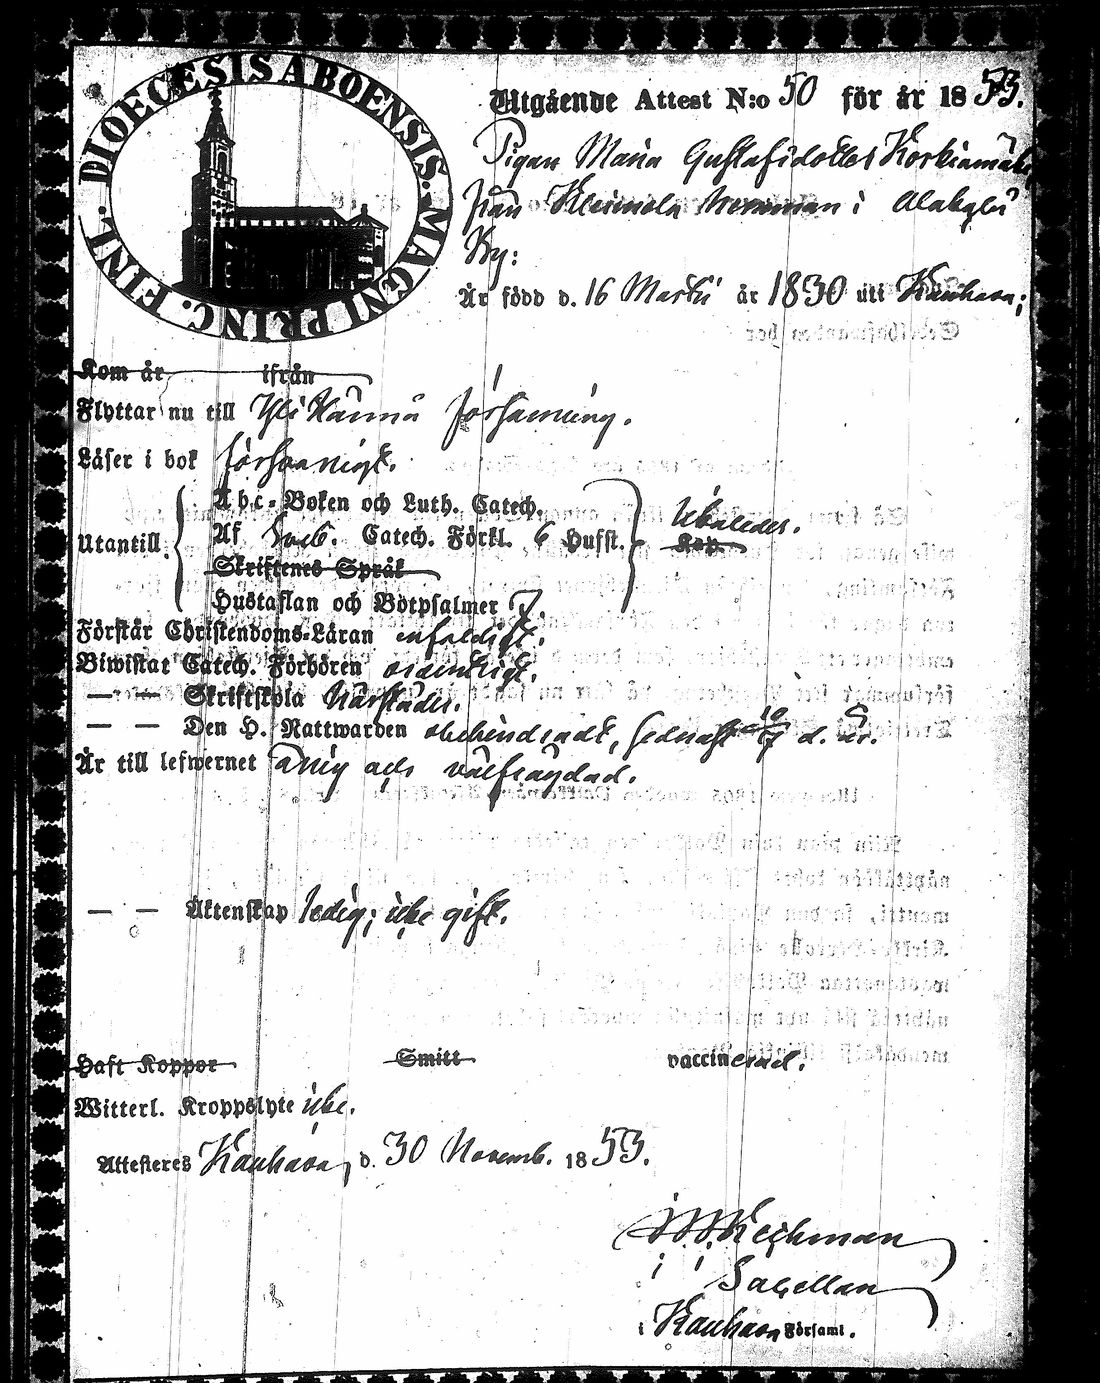 DIOECESIS ABOENSIS. MAGNI PRINC. FINL.
Utgående Attest N:o 50 för år 1853.
Pigan Maria Gustafsdotter Korkiamäki
från Kleimola hemman i Alakylä
By:
Är född d. 16 Martii år 1830 uti Kauhava;
Kom år ifrån
Flyttar nu till Yli Härmä församling.
Läser i bok försvarligt.
Abc-Boken och Luth. Catech.
Utantill. Af Sveb. Catech. Förkl. 6 Hufst. Utaledes.
Kap.
Skriftenes Språk
Hustaflan och Botpsalmer 7.
Förstår Christendoms-Läran enfaldigt.
Biwistat Catech. Förhören ordentligt.
— — Skriftskola
— — Den H. Nattwarden obehindradt, sednast d. år.
Är till lefwernet ärlig och välfrägdad.
— — Äktenskap ledig; icke gift.
Haft Koppor Smitt vaccinerad.
Witterl. Kroppslyte icke.
Attesteres Kauhava, d. 30 Novemb. 1853.
Sacellan
i Kauhava Församl.